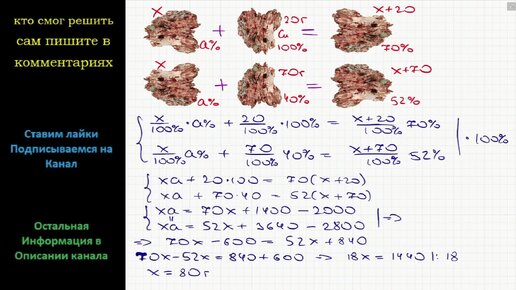 кто смог решить
сам пишите в
комментариях
Ставим лайки
Подписываемся на
Канал
Остальная
Информация в
Описании канала
x a% + 20г Cu 100% = x+20 70%
x a% + 70г 40% = x+70 52%
x/100% · a% + 20/100% · 100% = x+20/100% 70%
x/100% a% + 70/100% 40% = x+70/100% 52% | · 100%
xa + 20·100 = 70(x+20)
xa + 70·40 = 52(x+70)
xa = 70x + 1400 - 2000
xa = 52x + 3640 - 2800 | =>
=> 70x - 600 = 52x + 840
70x - 52x = 840 + 600 => 18x = 1440 | : 18
x = 80г